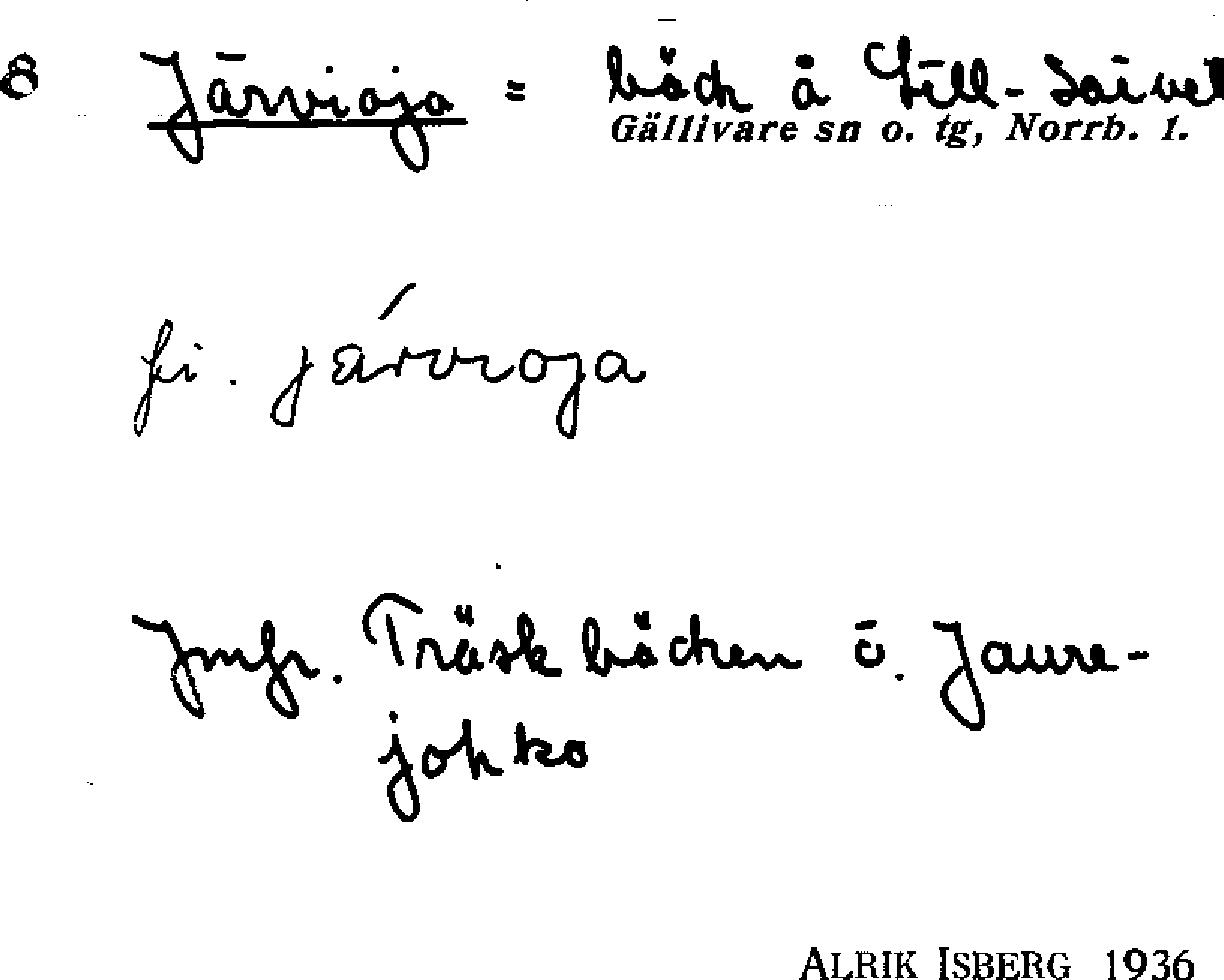 8 Järvioja = bäck å Lill-Saivel
Gällivare sn o. tg, Norrb. l.
fi. járvioja
Jmfr. Träskbäcken o. Jaure-
johko
ALRIK ISBERG 1936